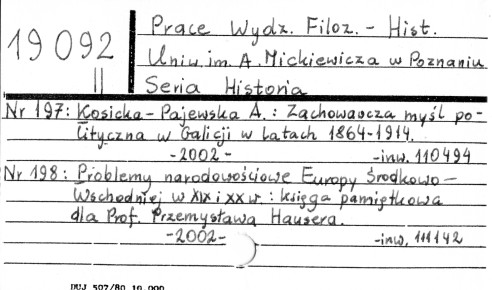 19092
II
Prace Wydz. Filoz. - Hist.
Uniw. im. A. Mickiewicza w Poznaniu
Seria Historia
Nr 197: Kosicka-Pajewska A.: Zachowawcza myśl po-
lityczna w Galicji w latach 1864-1914.
-2002- -inw. 110494
Nr 198: Problemy narodowościowe Europy Środkowo-
Wschodniej w XIX i XX w.: księga pamiątkowa
dla Prof. Przemysława Hausera.
-2002- -inw. 111142
DUJ 507/80 10.000